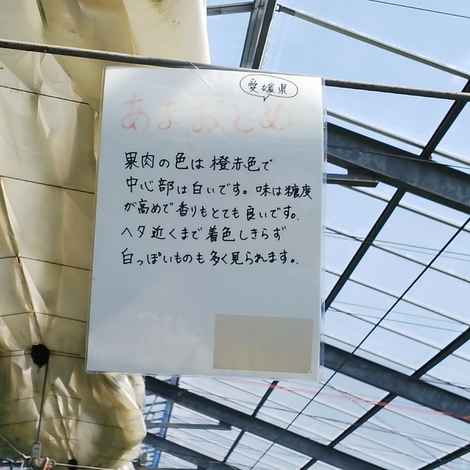 愛媛県
あまおとめ
果肉の色は橙赤色で
中心部は白いです。味は糖度
が高めで香りもとても良いです。
ヘタ近くまで着色しきらず
白っぽいものも多く見られます。